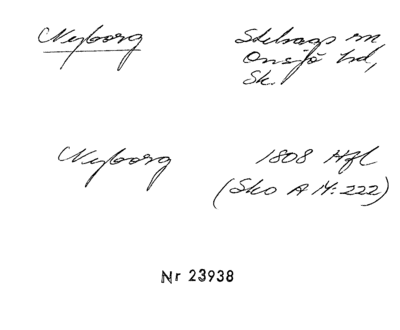 Nyborg
Stehags sn
Onsjö hd,
Sk.
Nyborg
1808 Hfl
(Sko A M: 222)
Nr 23938